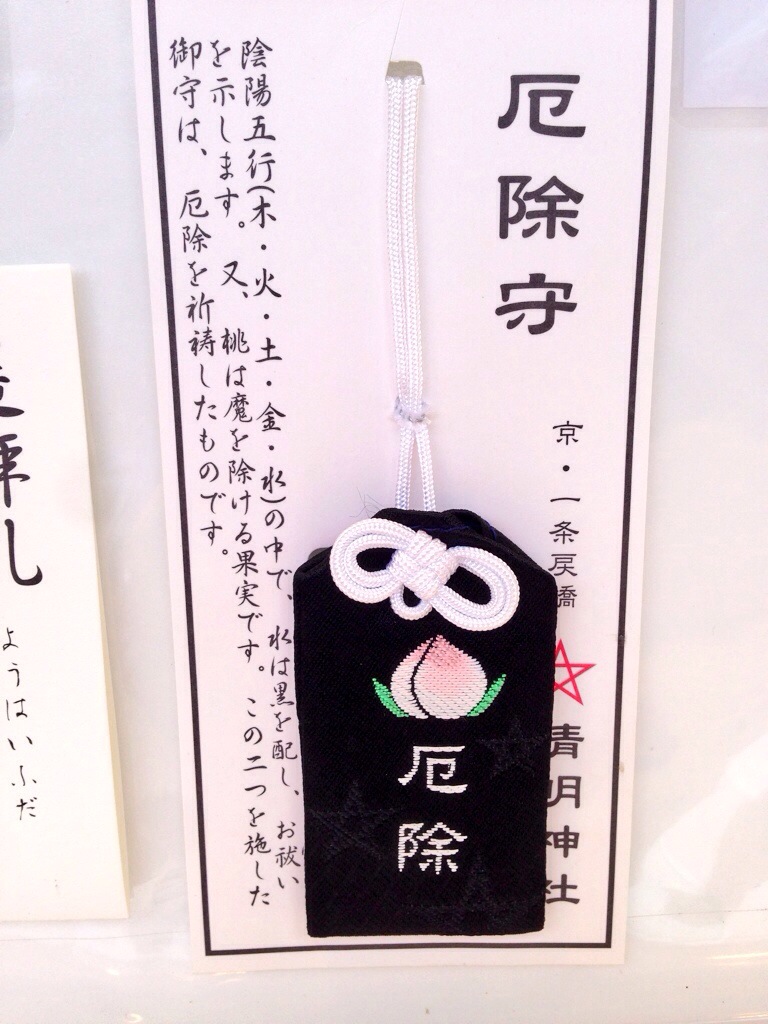 厄除守
京・一条戻橋
晴明神社
厄除
陰陽五行(木・火・土・金・水)の中で、水は黒を配し、お祓い
を示します。又、桃は魔を除ける果実です。この二つを施した
御守は、厄除を祈祷したものです。
ようはいふだ